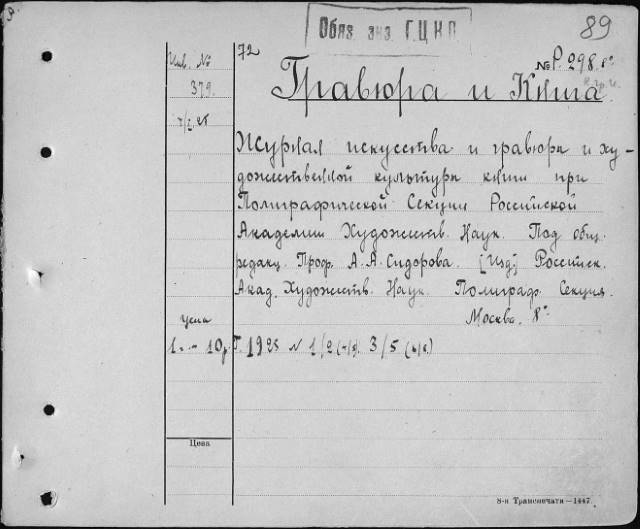 Обяз. экз. Г.Ц.К.П.
89
72
Инв. №
№ Р. 298. 8°
379.
Гравюра и Книга
7/I. 25
Журнал искусства и гравюра и ху-
дожественной культура книги при
Полиграфической Секции Российской
Академии Художеств. Наук. Под общ.
редакц. Проф. А. А. Сидорова. [Изд.] Российск.
Акад. Художеств. Наук. Полиграф. Секция.
Москва. 8°
Цена
1. - 10
Г. 1925 N 1/2 3/5
Цена
8-я Транспечати—1447.